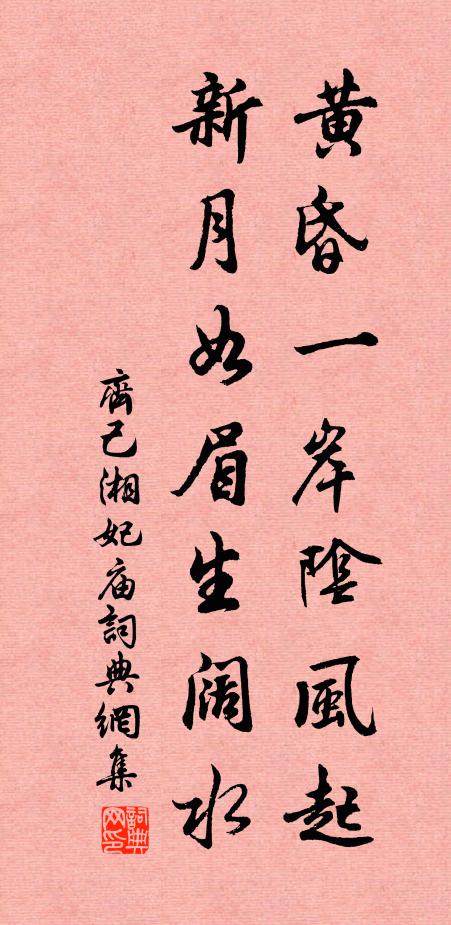 黄昏一岸陰風起
新月如眉生阔水
齊己湘妃庙詞典網集
詞典网印